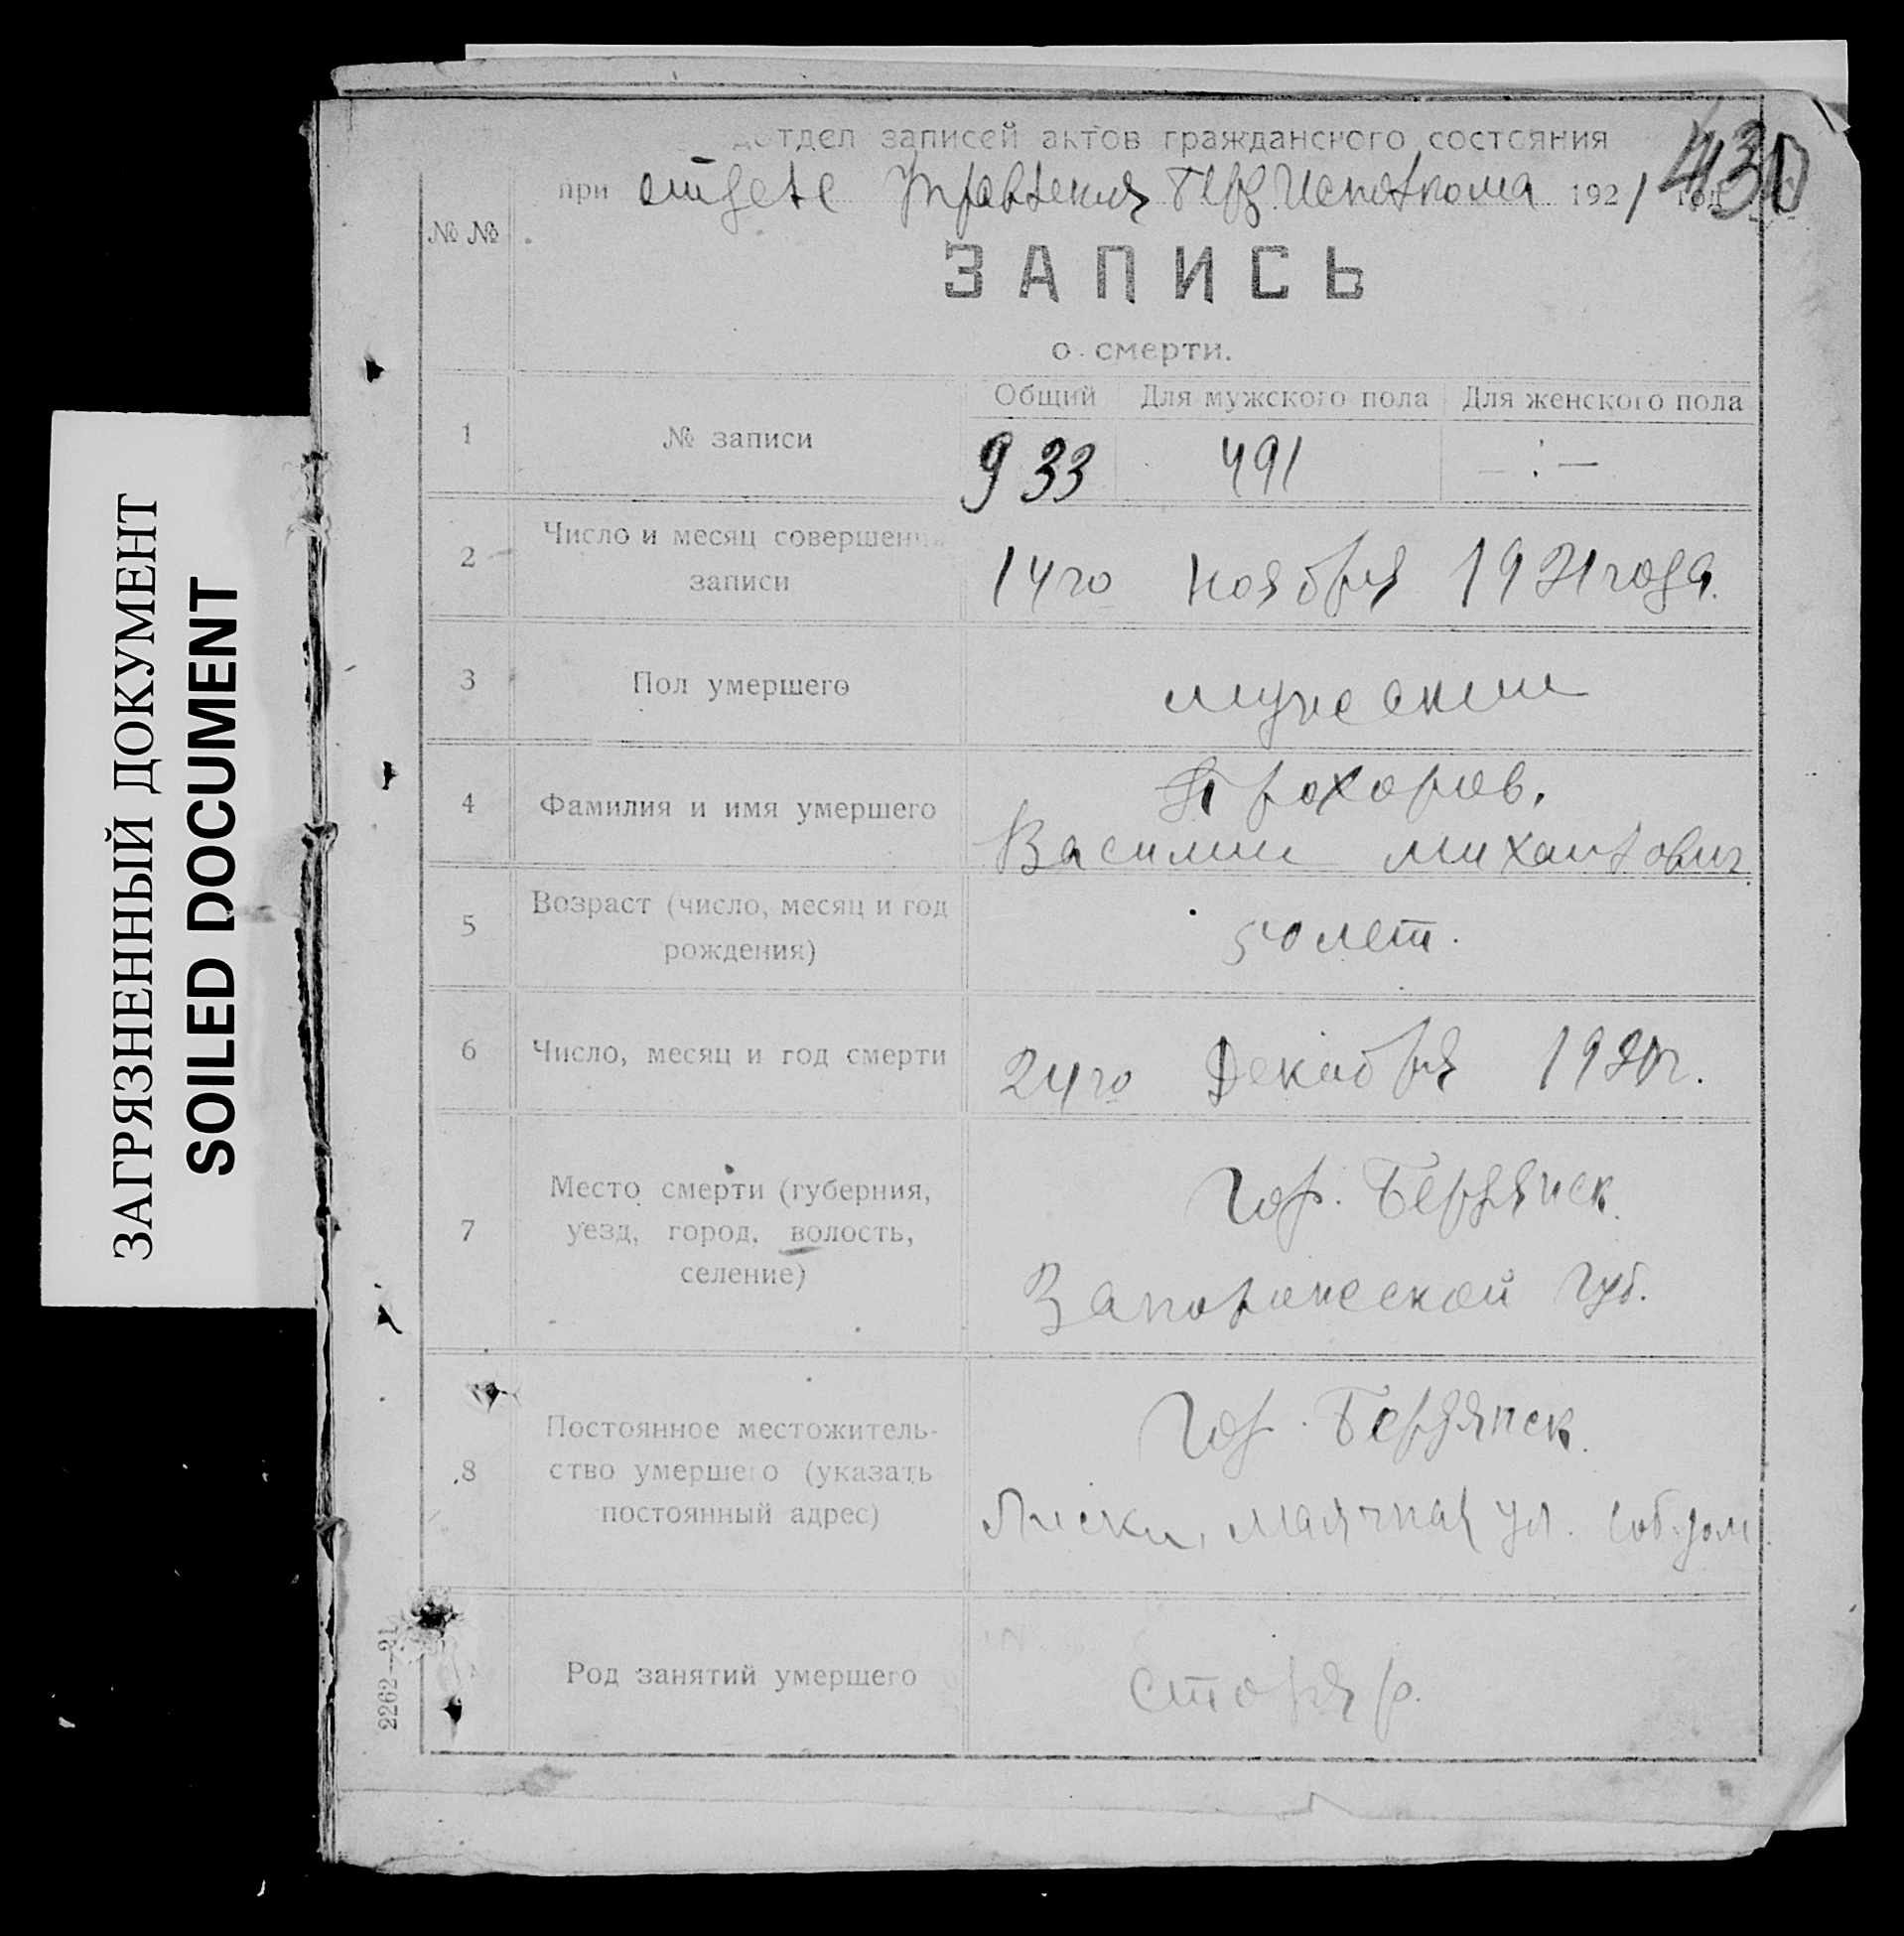 ЗАГРЯЗНЕННЫЙ ДОКУМЕНТ
SOILED DOCUMENT
отдел записей актов гражданского состояния
430
при отделе Управления Берд. Исполкома 1921 год
№ №
ЗАПИСЬ
о смерти.
Общий Для мужского пола Для женского пола
1 № записи 933 491 — : —
2 Число и месяц совершения
записи
14го ноября 1921 года.
3 Пол умершего мужский
4 Фамилия и имя умершего
Прохоров,
Василий Михайлович
5 Возраст (число, месяц и год
рождения)
50 лет.
6 Число, месяц и год смерти 24го Декабря 1920г.
7 Место смерти (губерния,
уезд, город, волость,
селение)
Гор. Бердянск.
Запорожской губ.
8 Постоянное местожитель-
ство умершего (указать
постоянный адрес)
Гор. Бердянск.
Лиски, Маячная ул. соб. дом.
Род занятий умершего столяр.
2262—21